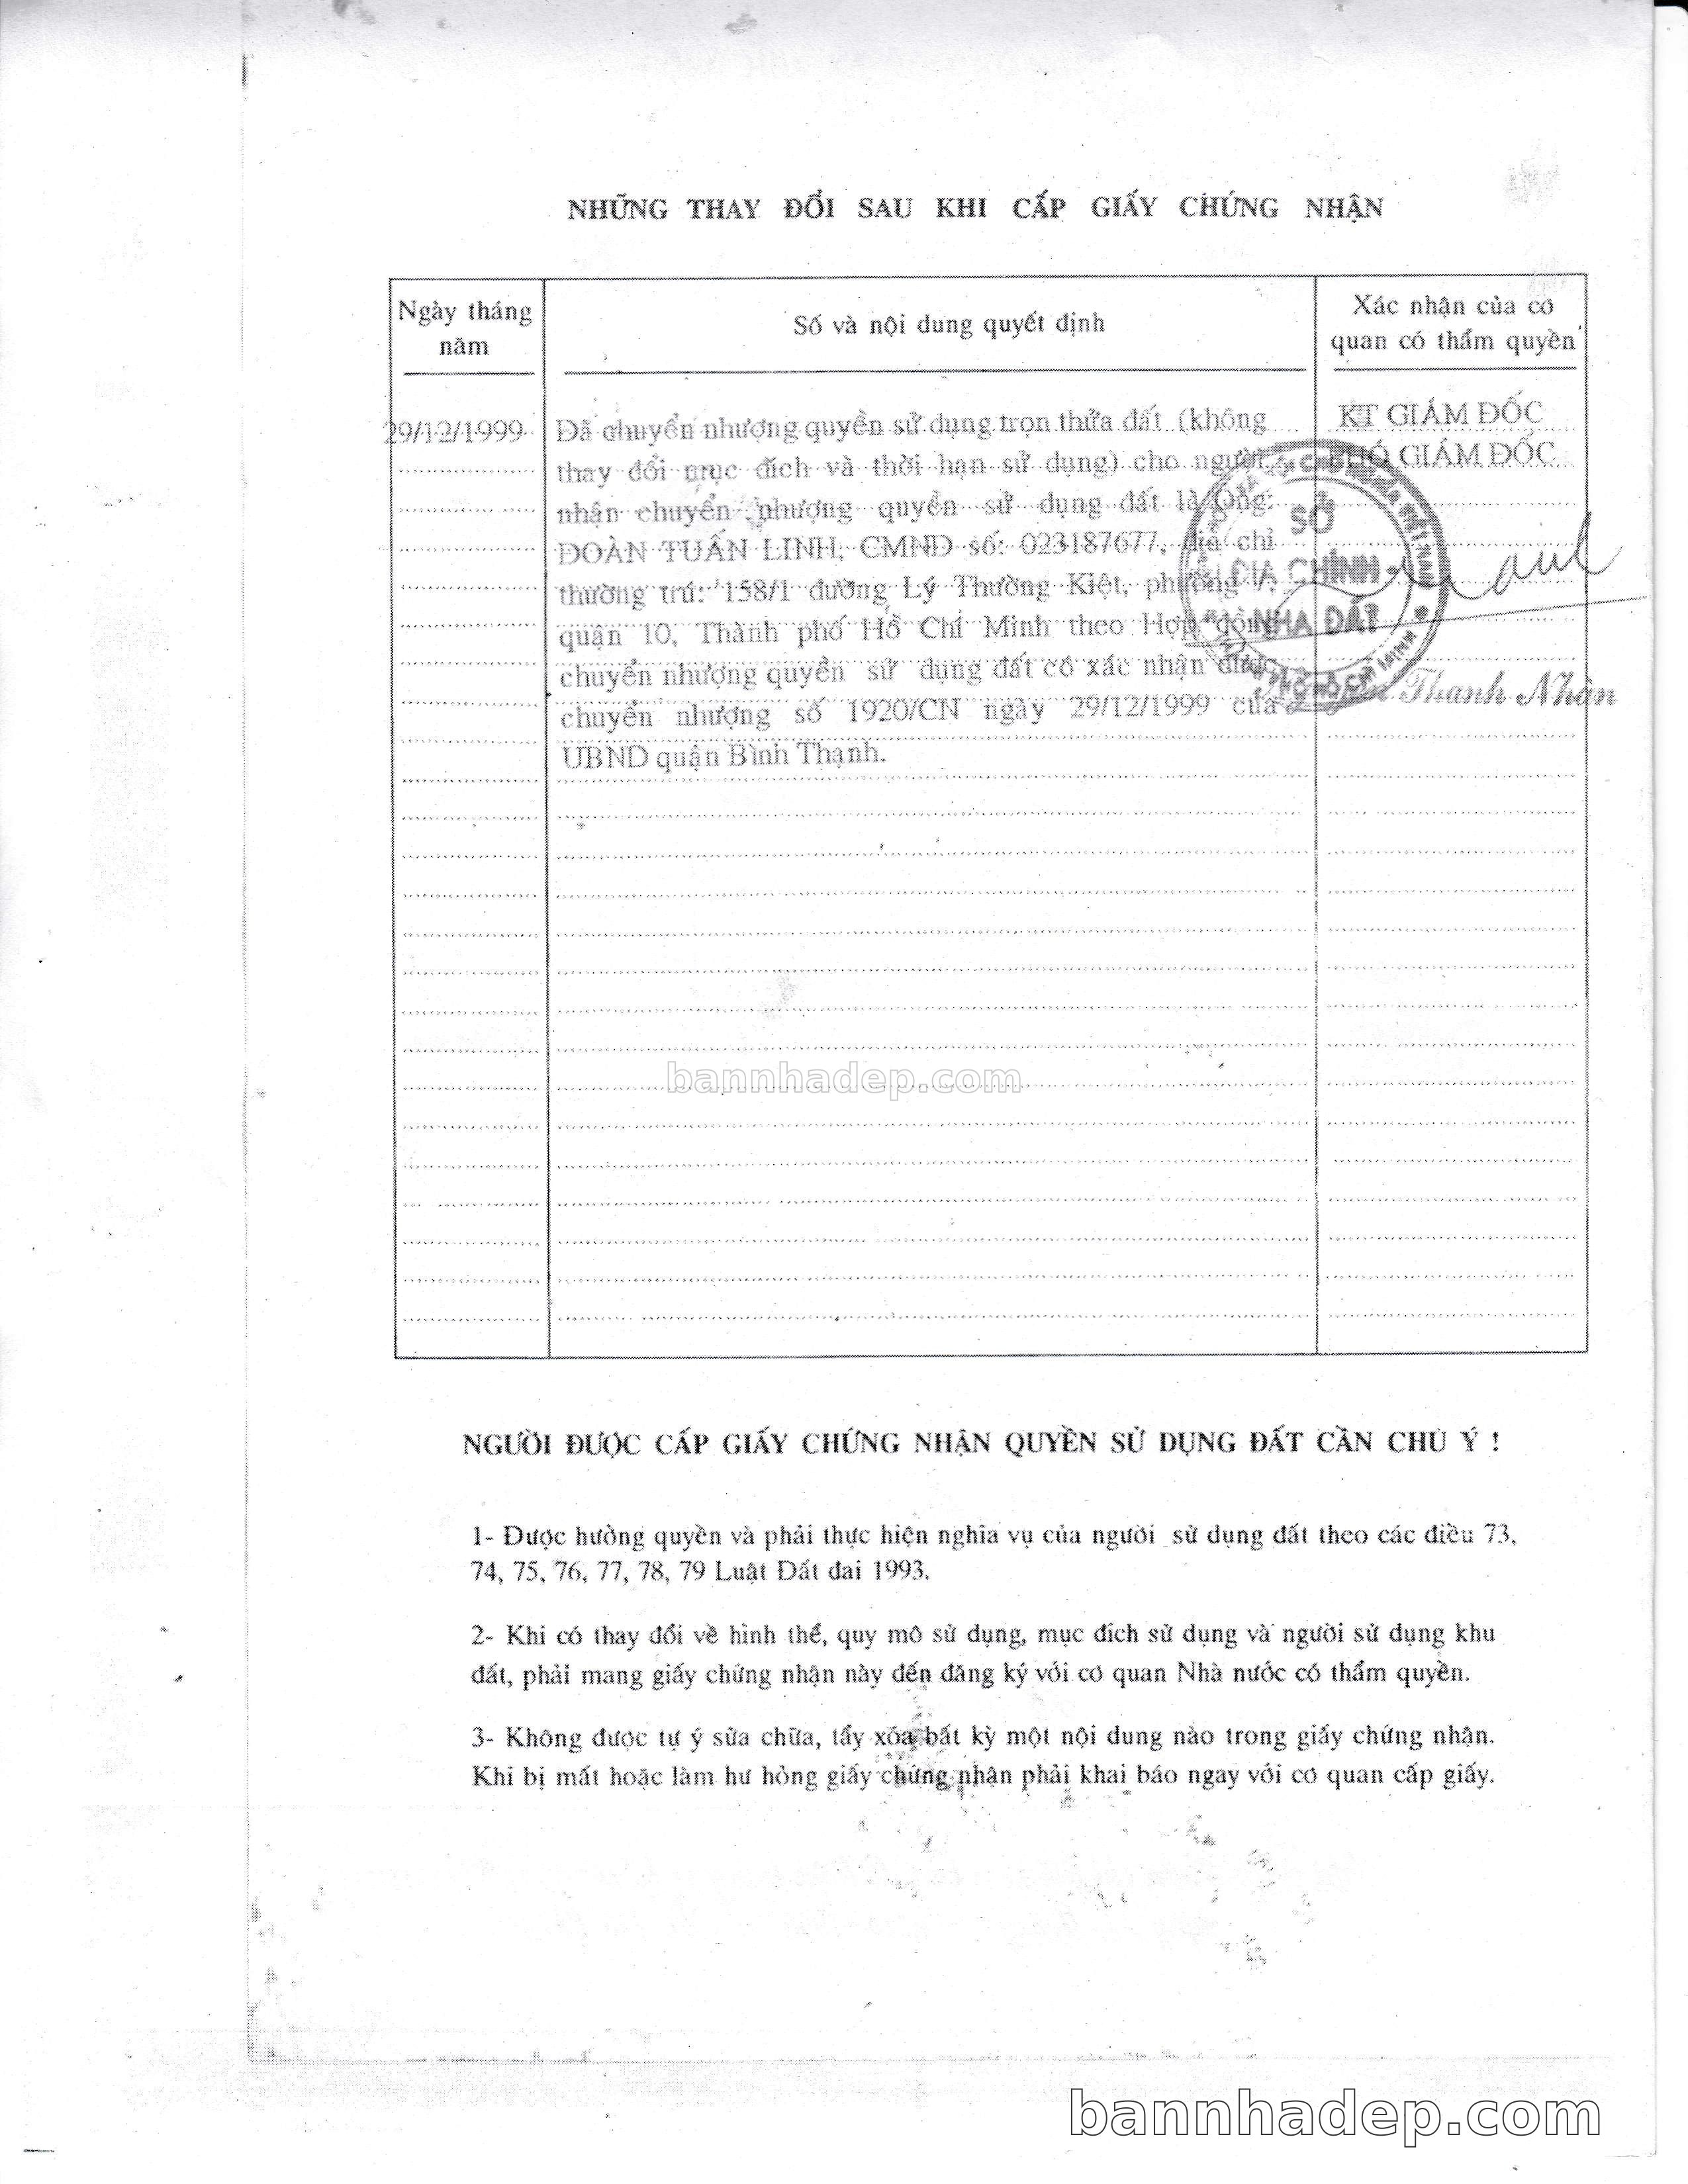 NHỮNG THAY ĐỔI SAU KHI CẤP GIẤY CHỨNG NHẬN
Ngày tháng năm
Số và nội dung quyết định
Xác nhận của cơ quan có thẩm quyền
29/12/1999
Đã chuyển nhượng quyền sử dụng trọn thửa đất (không
thay đổi mục đích và thời hạn sử dụng) cho người
nhận chuyển nhượng quyền sử dụng đất là Ông:
ĐOÀN TUẤN LINH, CMND số: 023187677, địa chỉ
thường trú: 158/1 đường Lý Thường Kiệt, phường
quận 10, Thành phố Hồ Chí Minh theo Hợp đồng
chuyển nhượng quyền sử dụng đất có xác nhận được
chuyển nhượng số 1920/CN ngày 29/12/1999 của
UBND quận Bình Thạnh.
KT GIÁM ĐỐC
PHÓ GIÁM ĐỐC
SỞ
ĐỊA CHÍNH
NHÀ ĐẤT
Thanh Nhàn
bannhadep.com
NGƯỜI ĐƯỢC CẤP GIẤY CHỨNG NHẬN QUYỀN SỬ DỤNG ĐẤT CẦN CHÚ Ý !
1- Được hưởng quyền và phải thực hiện nghĩa vụ của người sử dụng đất theo các điều 73,
74, 75, 76, 77, 78, 79 Luật Đất đai 1993.
2- Khi có thay đổi về hình thể, quy mô sử dụng, mục đích sử dụng và người sử dụng khu
đất, phải mang giấy chứng nhận này đến đăng ký với cơ quan Nhà nước có thẩm quyền.
3- Không được tự ý sửa chữa, tẩy xóa bất kỳ một nội dung nào trong giấy chứng nhận.
Khi bị mất hoặc làm hư hỏng giấy chứng nhận phải khai báo ngay với cơ quan cấp giấy.
bannhadep.com